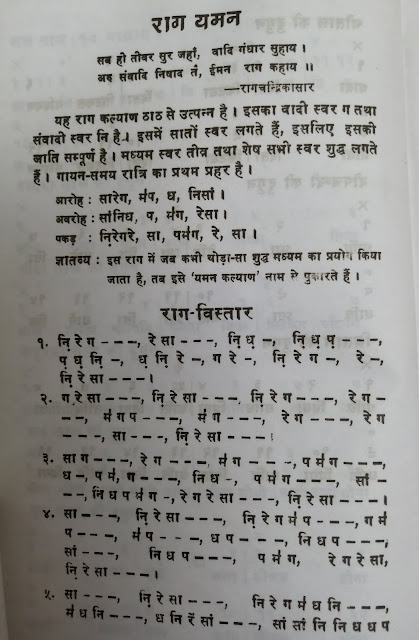 राग यमन
सब ही तीवर सुर जहां, वादि गंधार सुहाय ।
अरु संवादि निषाद तें, ईमन राग कहाय ॥
—रागचन्द्रिकासार
यह राग कल्याण ठाठ से उत्पन्न है । इसका वादी स्वर ग तथा
संवादी स्वर नि है । इसमें सातों स्वर लगते हैं, इसलिए इसकी
जाति सम्पूर्ण है । मध्यम स्वर तीव्र तथा शेष सभी स्वर शुद्ध लगते
हैं । गायन-समय रात्रि का प्रथम प्रहर है ।
आरोह : सारेग, म॑प, ध, निसां ।
अवरोह : सांनिध, प, म॑ग, रेसा ।
पकड़ : नि़रेगरे, सा, पम॑ग, रे, सा ।
ज्ञातव्य : इस राग में जब कभी थोड़ा-सा शुद्ध मध्यम का प्रयोग किया
जाता है, तब इसे 'यमन कल्याण' नाम से पुकारते हैं ।
राग-विस्तार
१. नि़ रे ग – – –, रे सा – – –, नि़ ध़ –, नि़ ध़ प़ – – –,
प़ ध़ नि़ –, ध़ नि़ रे –, ग रे –, नि़ रे ग –, रे –,
नि़ रे सा – – – ।
२. ग रे सा – – –, नि़ रे सा – – –, नि़ रे ग – – –, रे ग –
– –, म॑ ग प – – –, म॑ ग – – –, रे ग – – –, रे ग
– – –, सा – – –, नि़ रे सा – – – ।
३. सा ग – – –, रे ग – – –, म॑ ग – – – –, प म॑ ग – – –,
ध –, प म॑, ग – – –, नि ध –, प म॑ ग – – –, सां –
– –, नि ध प म॑ ग –, रे ग रे सा – – –, नि़ रे सा – – – ।
४. सा – – –, नि़ रे सा – – –, नि़ रे ग म॑ प – – –, ग म॑
प – – –, म॑ प – – –, ध प – – –, नि ध प – – –,
सां – – –, नि ध प – – –, प म॑ ग, रे ग रे सा,
नि़ रे सा – – – ।
५. सा – – –, नि़ रे सा – – –, नि़ रे ग म॑ ध नि – – –,
म॑ ध नि – – –, ध नि रें सां – – –, सां सां नि नि ध ध प